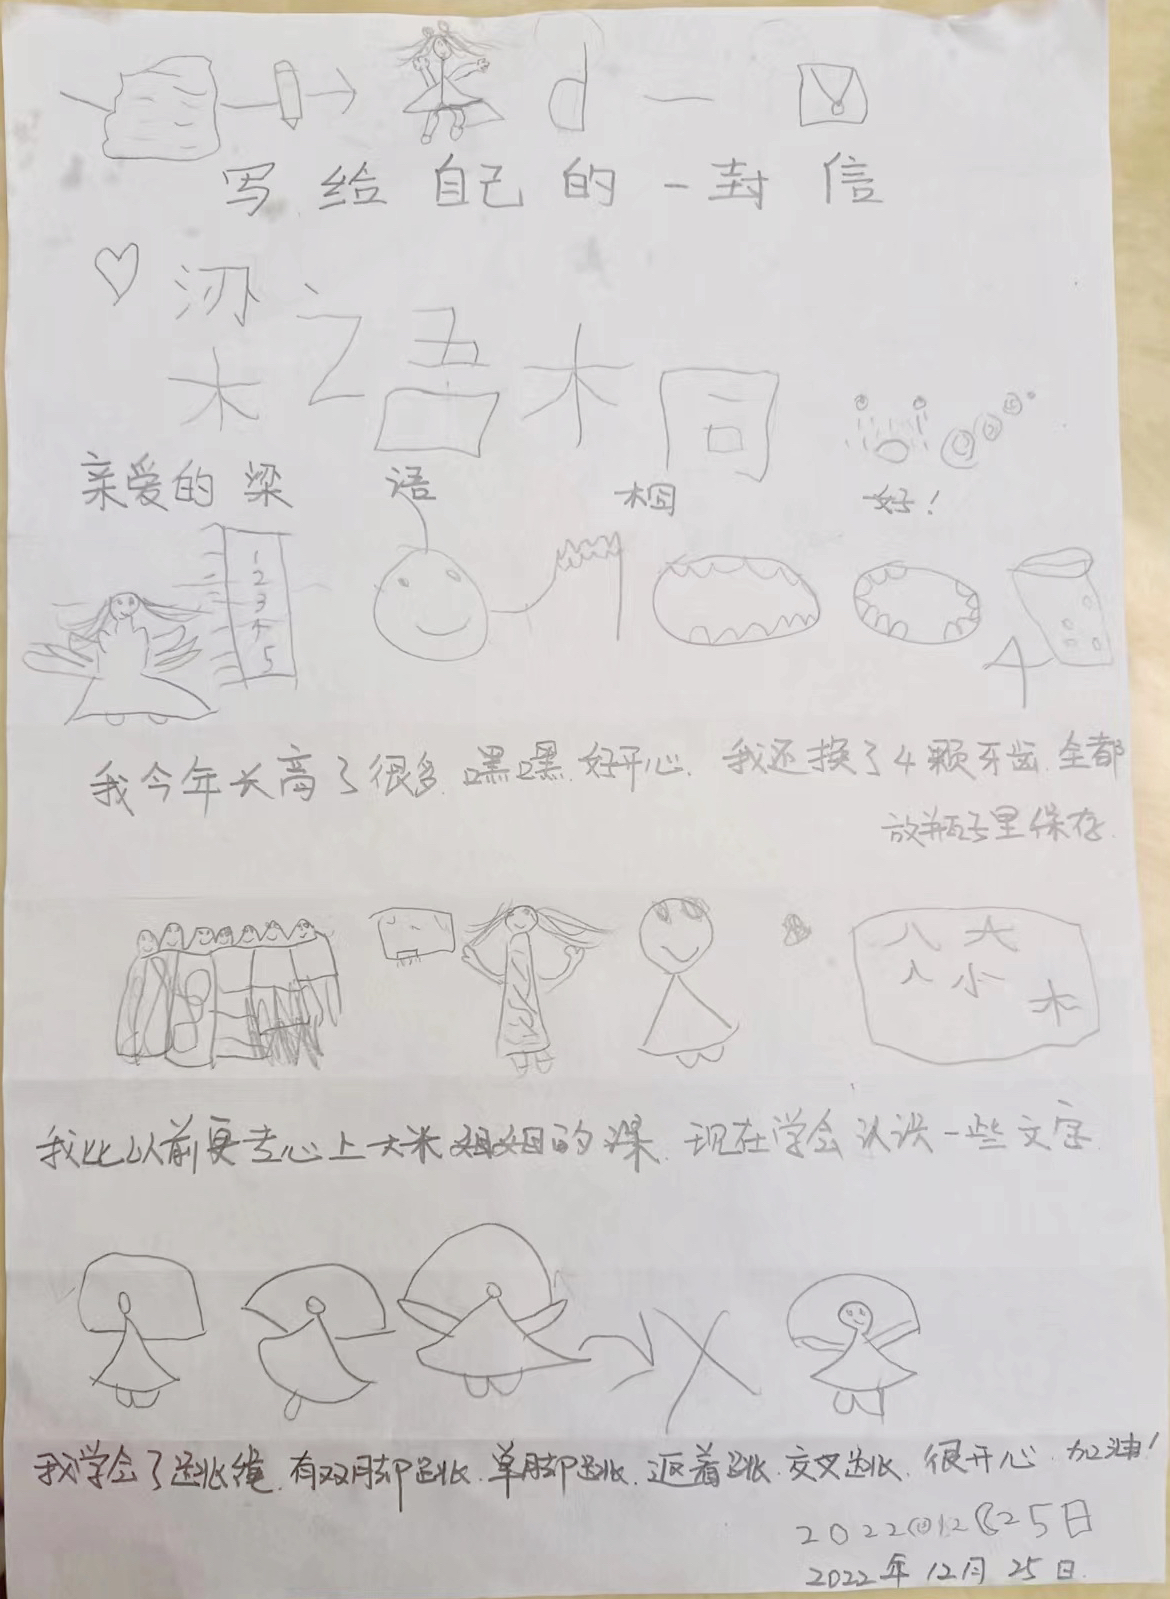 d 一
写给自己的一封信
亲爱的梁语桐
好！
1
2
3
4
5
4
我今年长高了很多,嘿嘿,好开心,我还换了4颗牙齿,全都
放瓶子里保存.
八 大
人 小
木
我比以前更专心上大米姐姐的课,现在学会认识一些文字
我学会了跳绳,有双脚跳,单脚跳,返着跳,交叉跳,很开心,加油!
25日
2022年12月25日.